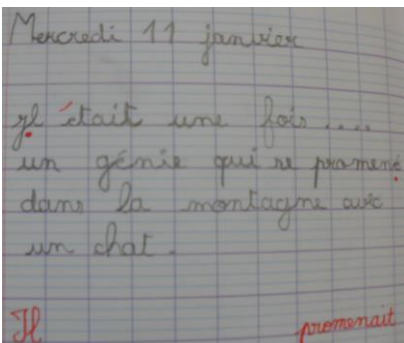 Mercredi 11 janvier
Il était une fois....
un génie qui se promené
dans la montagne avec
un chat.
Il promenait